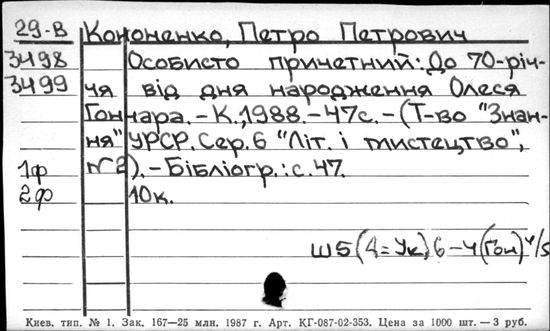 29-В Кононенко, Петро Петрович
3498 Особисто причетний: До 70-річ-
3499 чя від дня народження Олеся
Гончара. – К., 1988. – 47с. – (Т-во "Знан-
ня" УРСР. Сер. 6 "Літ. і мистецтво",
1ф №2). – Бібліогр.: с. 47.
2ф 10к.
Ш5(4=Ук)6-4(Гон)4/5
Киев. тип. № 1. Зак. 167—25 млн. 1987 г. Арт. КГ-087-02-353. Цена за 1000 шт. — 3 руб.